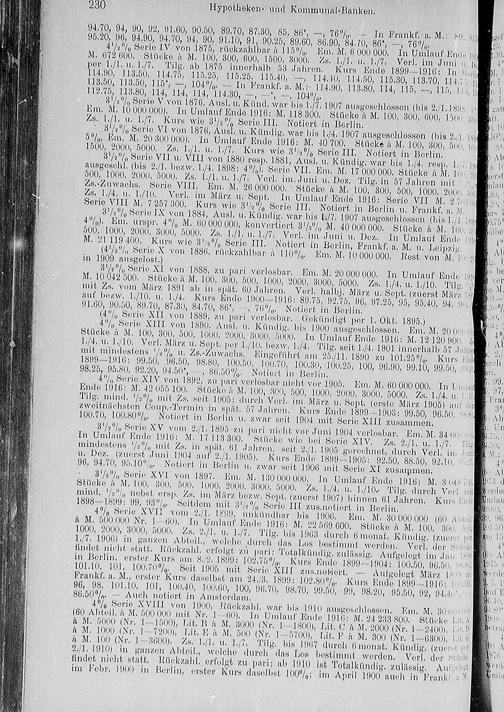 230 Hypotheken- und Kommunal-Banken.
94.70, 94, 90, 92, 91.60, 90.50, 89.70, 87.30, 85, 86*, —, 76%. — In Frankf. a. M.:
95.20, 96, 94.90, 94.70, 94, 90, 91.10, 91, 90.25, 89.60, 86.90, 84.70, 86*, —, 76%.
4½% Serie IV von 1875, rückzahlbar à 115%. Em. M. 6 000 000. In Umlauf Ende
M. 672 600. Stücke à M. 100, 300, 600, 1500, 3000. Zs. 1./1. u. 1./7. Verl. im Juni
per 1./1. u. 1./7. Tilg. ab 1875 innerhalb 53 Jahren. Kurs Ende 1899—1916: In
114.90, 113.50, 114.75, 115.25, 115.25, 115.40, —, 114.40, 114.50, 115.30, 113.70, 114.
113.50, 113.50, 115*, —, 104%. — In Frankf. a. M.: 114.90, 113.80, 114, 115, —, 115,
112.75, 113.80, 114, 114, 114, 114.30, —, —*, —, 104%.
3½% Serie V von 1876. Ausl. u. Künd. war bis 1./7. 1907 ausgeschlossen (bis 2./1. 1898
Em. M. 10 000 000). In Umlauf Ende 1916: M. 118 300. Stücke à M. 100, 300, 600, 1500
Zs. 1./1. u. 1./7. Kurs wie 3½% Serie III. Notiert in Berlin.
3½% Serie VI von 1876, Ausl. u. Kündig. war bis 1./4. 1907 ausgeschlossen (bis 2./1.
5%. Em. M. 20 300 000). In Umlauf Ende 1916: M. 40 700. Stücke à M. 100, 300, 500,
1500, 2000, 5000. Zs. 1./1. u. 1./7. Kurs wie 3½% Serie III. Notiert in Berlin.
3½% Serie VII u. VIII von 1880 resp. 1881, Ausl. u. Kündig. war bis 1./4. resp. 1.
ausgeschl. (bis 2./1. bezw. 1./4. 1898: 4%). Serie VII. Em. M. 17 000 000. Stücke à M.
500, 1000, 2000, 5000. Zs. 1./1. u. 1./7. Verl. im Juni u. Dez. Tilg. in 57 Jahren mit
Zs.-Zuwachs. Serie VIII. Em. M. 26 000 000. Stücke à M. 100, 300, 500, 1000, 2000
Zs. 1./4. u. 1./10. Verl. im März u. Sept. In Umlauf Ende 1916: Serie VII M. 2
Serie VIII M. 7 257 300. Kurs wie 3½% Serie III. Notiert in Berlin u. Frankf. a. M.
3½% Serie IX von 1884, Ausl. u. Kündig. war bis 1./7. 1907 ausgeschlossen (bis 1./
4%). Em. urspr. 4% M. 60 000 000, konvertiert 3½% M. 40 000 000. Stücke à M. 100,
500, 1000, 2000, 3000, 5000. Zs. 1./1. u. 1./7. Verl. im Juni u. Dez. In Umlauf Ende
M. 21 119 400. Kurs wie 3½% Serie III. Notiert in Berlin, Frankf. a. M. u. Leipzig.
(4½% Serie X von 1886, rückzahlbar à 110%. Em. M. 10 000 000. Rest von M.
in 1909 ausgelost.)
3½% Serie XI von 1888, zu pari verlosbar. Em. M. 20 000 000. In Umlauf Ende
M. 10 042 500. Stücke à M. 100, 300, 500, 1000, 2000, 3000, 5000. Zs. 1./4. u. 1./10. Tilg.
mit Zs. vom März 1891 ab in spät. 60 Jahren. Verl. halbj. März u. Sept. (zuerst März
auf bezw. 1./10. u. 1./4. Kurs Ende 1900—1916: 89.75, 92.75, 96, 97.25, 95, 95.40, 94,
91.60, 90.50, 89.70, 87.30, 84.70, 86*, —, 76%. Notiert in Berlin.
(4% Serie XII von 1889, zu pari verlosbar. Gekündigt per 1. Okt. 1895.)
4% Serie XIII von 1890. Ausl. u. Kündig. bis 1900 ausgeschlossen. Em. M. 20
Stücke à M. 100, 300, 500, 1000, 2000, 3000, 5000. In Umlauf Ende 1916: M. 12 120 900.
1./4. u. 1./10. Verl. März u. Sept. per 1./10. bezw. 1./4. Tilg. seit 1./4. 1901 innerhalb 57
mit mindestens ½% u. Zs.-Zuwachs. Eingeführt am 25./11. 1890 zu 101.25%. Kurs
1899—1916: 99.50, 96.50, 98.80, 100.50, 100.70, 100.30, 100.25, 100, 96.90, 99.10, 99.50,
98.25, 95.80, 92.20, 94.50*, —, 86.50%. Notiert in Berlin.
4% Serie XIV von 1892, zu pari verlosbar nicht vor 1905. Em. M. 60 000 000. In
Ende 1916: M. 42 065 100. Stücke à M. 100, 300, 500, 1000, 2000, 3000, 5000. Zs. 1./4. u.
Tilg. mind. ½% mit Zs. seit 1905; durch Verl. im März u. Sept. (erste März 1905) auf
zweitnächsten Coup.-Termin in spät. 57 Jahren. Kurs Ende 1899—1903: 99.50, 96.50, 98.
100.70, 100.80%. Notiert in Berlin u. zwar seit 1904 mit Serie XIII zusammen.
3½% Serie XV vom 2./1. 1895 zu pari nicht vor Juni 1904 verlosbar. Em. M. 34
In Umlauf Ende 1916: M. 17 113 300. Stücke wie bei Serie XIV. Zs. 2./1. u. 1./7.
mindestens ½% mit Zs. in spät. 61 Jahren, seit 2./1. 1905 gerechnet, durch Verl. im
u. Dez. (zuerst Juni 1904 auf 2./1. 1905). Kurs Ende 1899—1905: 92.50, 88.50, 92.10,
96, 94.70, 95.10%. Notiert in Berlin u. zwar seit 1906 mit Serie XI zusammen.
3½% Serie XVI von 1897. Em. M. 130 000 000. In Umlauf Ende 1916: M. 3 048
Stücke à M. 100, 300, 500, 1000, 2000, 3000, 5000. Zs. 1./4. u. 1./10. Tilg. durch Verl.
mind. ½% nebst ersp. Zs. im März bezw. Sept. (zuerst 1907) binnen 61 Jahren. Kurs
1898—1899: 99, 93%. Seitdem mit 3½% Serie III zus.notiert in Berlin.
4% Serie XVII vom 2./1. 1899, unkündbar bis 1906. Em. M. 30 000 000 (60
à M. 500 000 Nr. 1—60). In Umlauf Ende 1916: M. 22 569 600. Stücke à M. 100, 300,
1000, 2000, 3000, 5000. Zs. 2./1. u. 1./7. Tilg. bis 1963 durch 6 monat. Kündig. (zuerst
1./7. 1906) in ganzen Abteil., welche durch das Los bestimmt werden. Verl. der
findet nicht statt. Rückzahl. erfolgt zu pari; Totalkündig. zulässig. Aufgelegt im Jan.
in Berlin, erster Kurs am 8./2. 1899: 102.75%. Kurs Ende 1899—1904: 100.50, 96.50,
101.10, 101, 100.70%. Seit 1905 mit Serie XIII zus.notiert. — Aufgelegt März
Frankf. a. M., erster Kurs daselbst am 24./3. 1899: 102.80%. Kurs Ende 1899—1916:
96, 98, 101.10, 101, 100.40, 100.60, 100, 96.70, 98.70, 99.50, 99, 98.20, 95.50, 92, 94.40*,
86.50%. — Auch notiert in Amsterdam.
4% Serie XVIII von 1900, Rückzahl. war bis 1910 ausgeschlossen. Em. M. 30
(60 Abteil. à M. 500 000 mit Nr. 1—60). In Umlauf Ende 1916: M. 24 233 800. Stücke
à M. 5000 (Nr. 1—1500), Lit. B à M. 3000 (Nr. 1—1800), Lit. C à M. 2000 (Nr. 1—2400),
à M. 1000 (Nr. 1—7200), Lit. E à M. 500 (Nr. 1—5700), Lit. F à M. 300 (Nr. 1—6300),
à M. 100 (Nr. 1—3000). Zs. 1./1. u. 1./7. Tilg. bis 1967 durch 6 monat. Kündig. (zuerst
2./1. 1910) in ganzen Abteil., welche durch das Los bestimmt werden. Verl. der
findet nicht statt. Rückzahl. erfolgt zu pari; ab 1910 ist Totalkündig. zulässig.
im Febr. 1900 in Berlin, erster Kurs daselbst 100%; im April 1900 auch in Frankf.